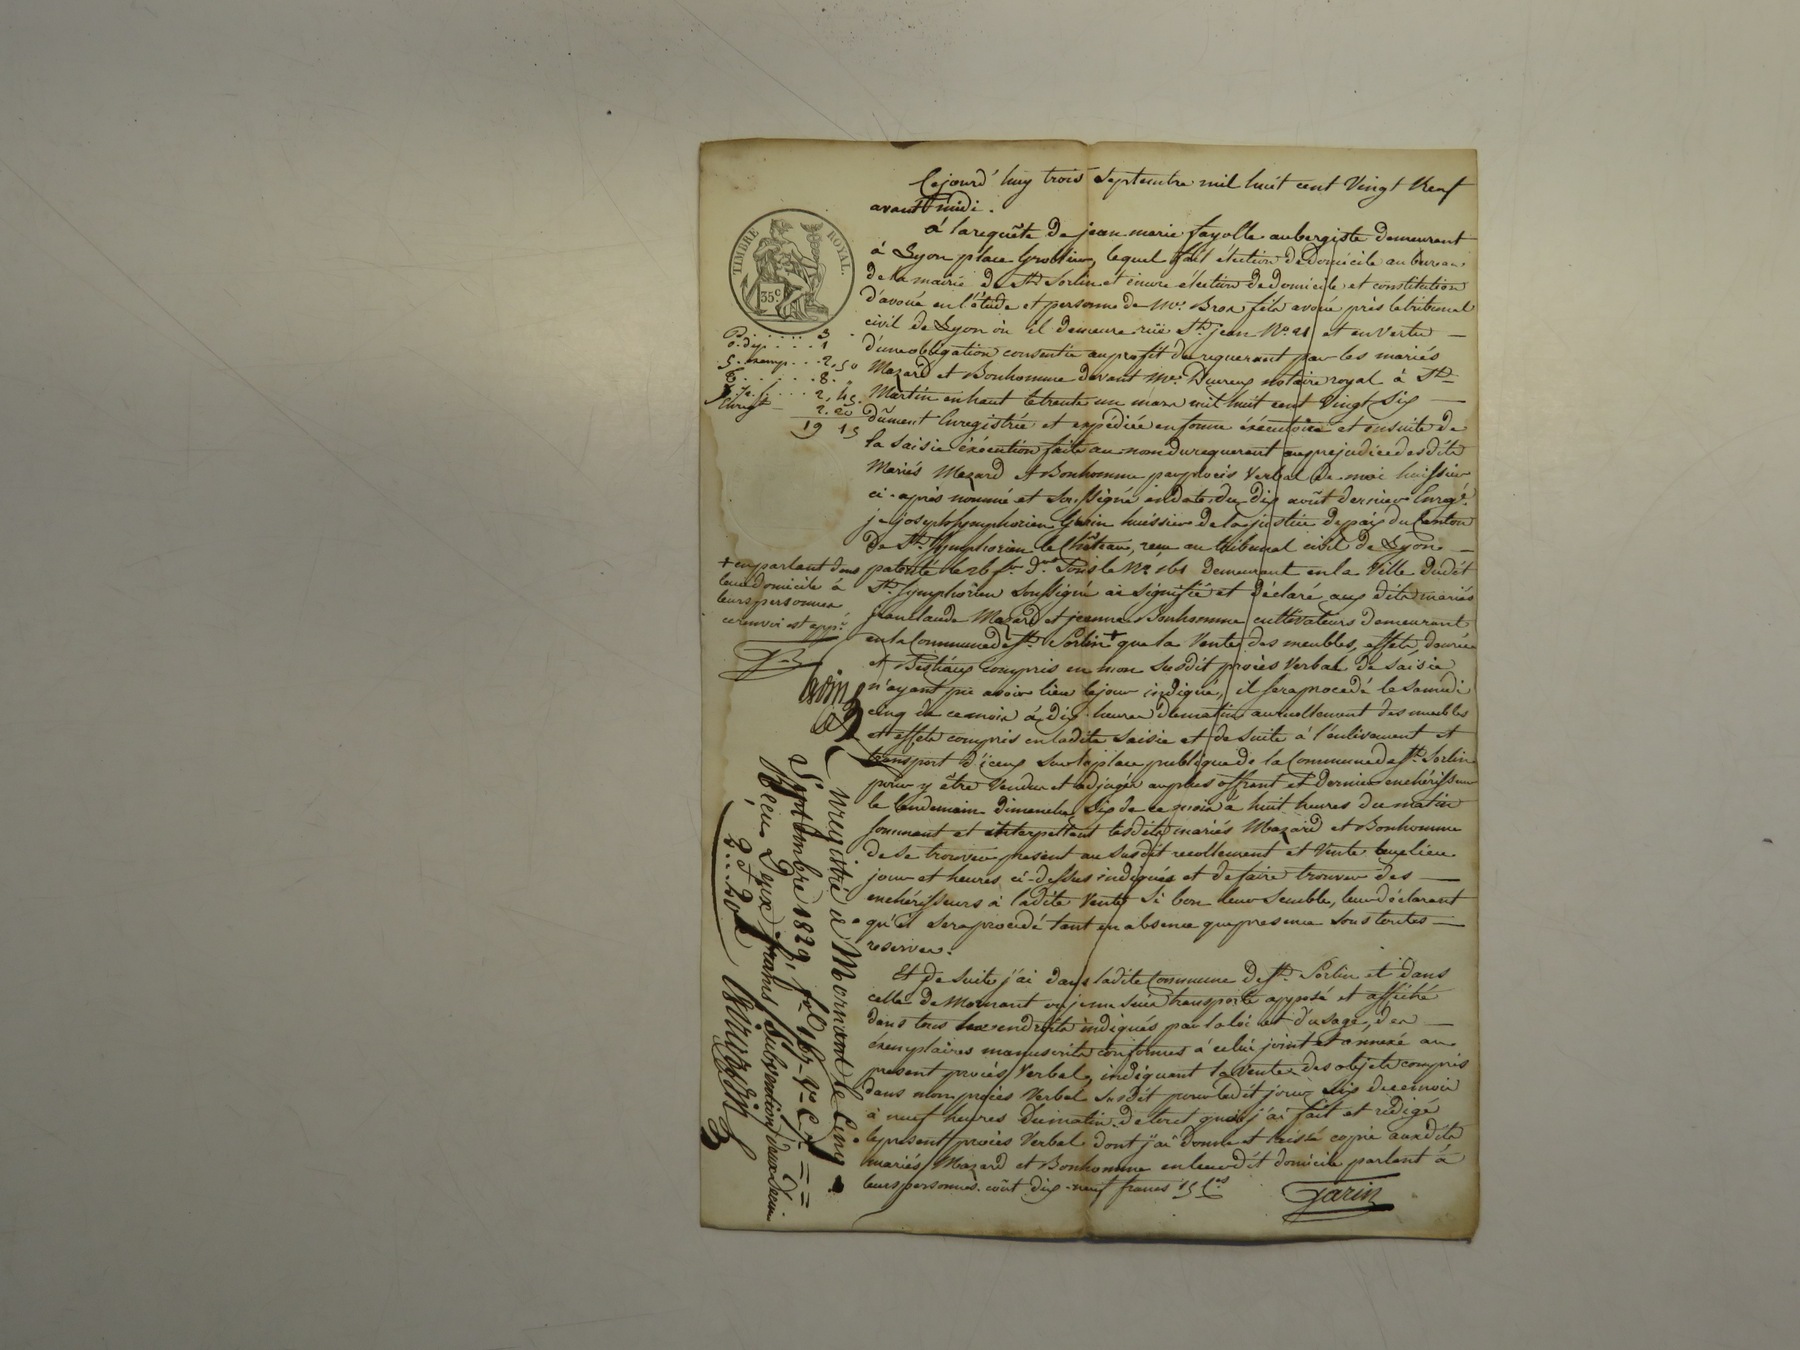 Cejourd'huy trois Septembre mil huit cent Vingt Neuf
avant midi.
à la requête de jean marie fayolle aubergiste demeurant
à Lyon place Grollier, lequel fait élection de domicile au bureau
de la mairie de St. Sorlin et encore élection de domicile et constitution
d'avoué en l'étude et personne de Me. Bros fils avoué près le tribunal
civil de Lyon où il demeure rüe St. jean No. 21 et en vertu
d'une obligation consentie au profit du requerant par les mariés
Mazard et Bonhomme devant Me. notaire royal à St.
Martin en haut le trente un mars mil huit cent Vingt Six
dûment Enregistrée et expédiée en forme éxécutoire et ensuite de
la Saisie éxécution faite au nom du requerant au prejudice desdits
Mariés Mazard et Bonhomme par procès Verbal de moi huissier
ci-après nommé et Soussigné en date du dix août dernier Enregé.
je joseph Symphorien Garin huissier de la justice de paix du Canton
de St. Symphorien le Château, reçu au tribunal civil de Lyon
patenté le 26 Sous le No. 161 demeurant en la Ville dudit
St. Symphorien Soussigné ai signifié et déclaré aux dits mariés
jean claude Mazard et jeanne Bonhomme cultivateurs demeurant
en la Commune de St. Sorlin + que la Vente des meubles, effets, denrées
et Bestiaux compris en mon Susdit procès Verbal de Saisie
n'ayant pu avoir lieu le jour indiqué, il Sera procedé le Samedi
cinq de ce mois à dix heures du matin au recollement des meubles
et effets compris en ladite Saisie et de Suite à l'enlèvement et
transport d'iceux Sur la place publique de la Commune de St. Sorlin
pour y être Vendus et adjugés au plus offrant et Dernier enchérisseur
le lendemain dimanche Six de ce mois à huit heures du matin
Sommant et interpellant lesdits mariés Mazard et Bonhomme
de Se trouver present au Susdit recollement et Vente aux lieu
jour et heures ci-dessus indiqués et de faire trouver des
enchérisseurs à ladite Vente Si bon leur Semble, leur déclarant
qu'il Sera procédé tant en absence que presence Sous toutes
reserves.
Et de Suite j'ai dans ladite Commune de St. Sorlin et dans
celle de Mornant où je me Suis transporté apposé et affiché
dans tous les endroits indiqués par la loi et d'usage, des
éxemplaires manuscrits conformes à celui joint et annexé au
present procès Verbal, indiquant la Vente des objets compris
dans mon procès Verbal Susdit pour ledit jour Six de ce mois
à neuf heures Du matin. De tout quoi j'ai fait et rédigé
le present procès Verbal dont j'ai Donné et laissé copie auxdits
mariés Mazard et Bonhomme en leur Dit domicile parlant à
leurs personnes. coût dix-neuf francs 15 Ces
Garin
TIMBRE ROYAL.
35c
3
1
2,50
8.
2,45.
Enregt 2.20
19 15
+ en parlant dans
leur domicile à
leurs personnes
ce renvoi est appé.
Enregistré à Mornant le Cinq
Septembre 1829, fo. 167 Vo. Ce.
Reçu Deux francs Subvention
2 f 20 c